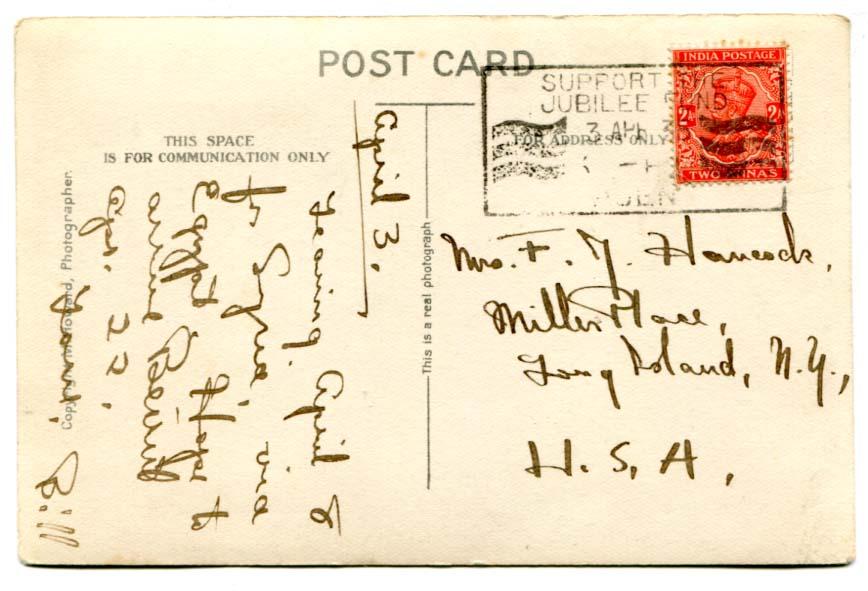 POST CARD
THIS SPACE
IS FOR COMMUNICATION ONLY
FOR ADDRESS ONLY
INDIA POSTAGE
2As 2As
TWO ANNAS
SUPPORT THE
JUBILEE FUND
3 APR
ADEN
April 3.
Leaving April 8
for Syria via
Egypt. Hope to
arrive Beirut
Apr. 22.
Bill
Mrs. F. J. Hancock,
Miller Place,
Long Island, N.Y.,
U. S. A.
This is a real photograph
Howard, Photographer.